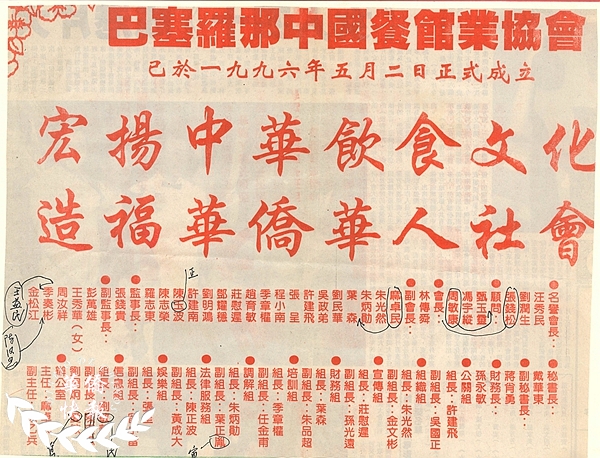 巴塞羅那中國餐館業協會
已於一九九六年五月二日正式成立
宏揚中華飲食文化
造福華僑華人社會
●名譽會長：
汪秀民
劉潤生
張錢松
●顧問：
甄玉靈
馮宇縱
周敏康
●會長：
林傳舜
●副會長：
麻卓民
朱光然
朱炳勛
葉 森
劉民華
吳政弟
許建飛
張 呈
程小南
季章權
趙育敏
莊慰遲
鄧耀穗
劉明鴻
許建南
陳 波
陳志榮
羅志東
●監事長：
張錢貴
●副監事長：
彭萬雄
王秀華（女）
周汝祥
季奏彬
金松江
●秘書長：
戴華東
●副秘書長：
蔣向勇
●財務長：
孫永敏
●公關組
組長：許建飛
副組長：吳國正
●組織組
組長：朱光然
副組長：金文彬
●宣傳組
組長：莊慰遲
副組長：孫光遺
●財務組
組長：葉森
副組長：朱品超
●培訓組
組長：季章權
副組長：任金南
●調解組
組長：朱炳勛
副組長：葉正鳳
●法律服務組
組長：陳正波
副組長：黃成大
●娛樂組
組長：張
副組長：
●信息組
組長：劉
副組長：
●辦公室
主任：
副主任：
正